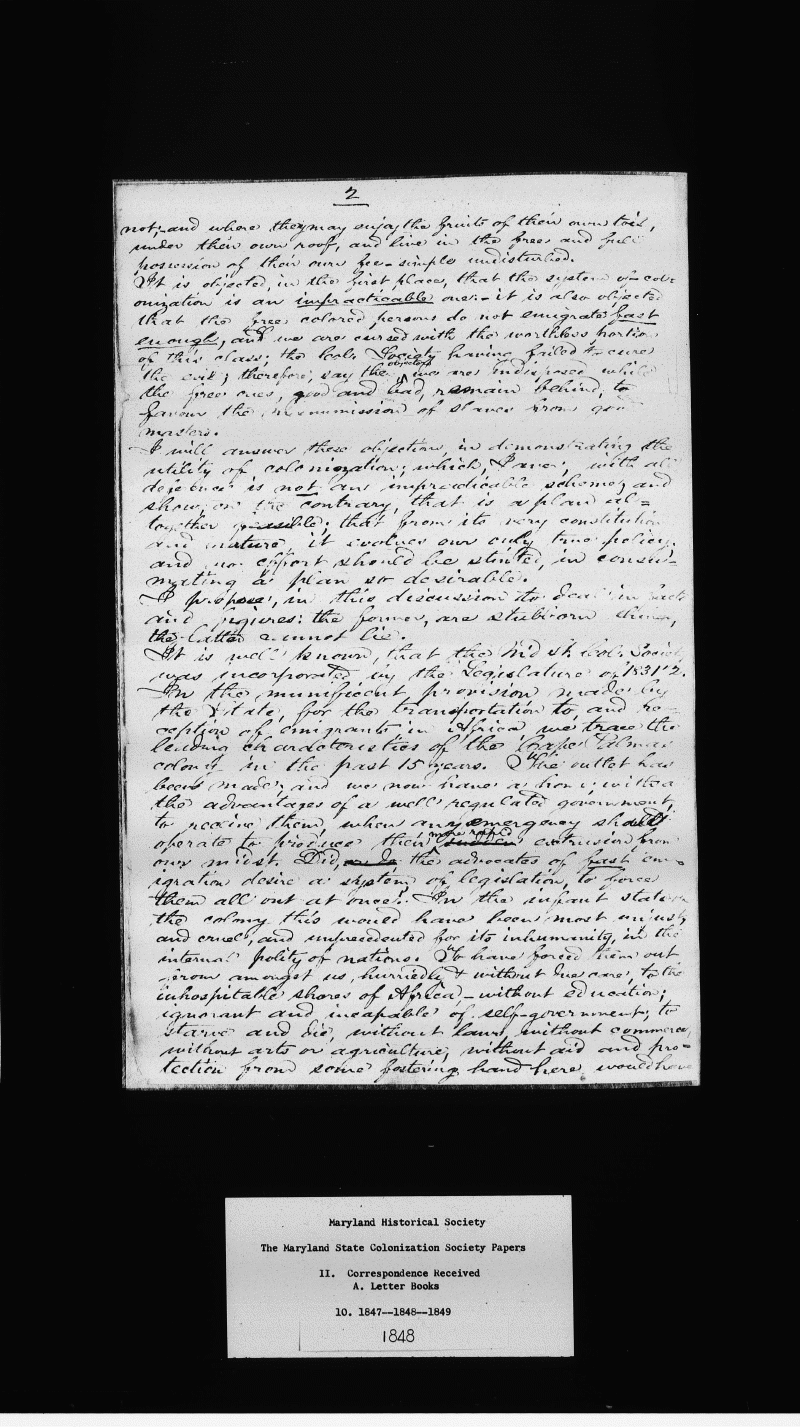 2
not,- and where they may enjoy the fruits of their own toil,
under their own roof, and live in the free and full
possession of their own fee-simple undisturbed.
It is objected, in the first place, that the system of col-
onization is an impracticable one:- it is also objected
that the free colored persons do not emigrate fast
enough, and we are cursed with the worthless portion
of this class; the Col. Society having failed to cure
the evil; therefore, say the objectors we are indisposed while
the free ones, good and bad, remain behind, to
favour the manumission of slaves from good
masters.
I will answer these objection, in demonstrating the
utility of colonization; which, I aver, with all
deference is not an impracticable scheme; and
show, on the contrary, that is a plan al=
together possible; that from its very constitution
and nature it evolves our only true policy,
and no effort should be stinted, in consum-
mating a plan so desirable.
I propose, in this discussion to deal in facts
and figures: the former, are stubborn things,
the latter cannot lie.
It is well known, that the Md St. Col. Society
was incorporated by the Legislature of 1831'2.
In the munificent provision made by
the State, for the transportation to and re-
ception of emigrants in Africa, we trace the
leading characteristics of the Cape Palmas
colony in the past 15 years. The outlet has
been made; and we now have a home, with all
the advantages of a well regulated government,
to receive them, when any emergency shall
operate to produce their more rapid sudden extrusion from
our midst. Did, the advocates of fast em-
igration desire a system, of legislation, to force
them all out at once? In the infant state of
the colony this would have been most unjust,
and cruel, and unprecedented for its inhumanity, in the
internal polity of nations. To have forced them out
from amongst us, hurriedly & without due care, to the
inhospitable shores of Africa,- without education;
ignorant and incapable of self-government; to
starve and die, without laws, without commerce,
without arts or agriculture, without aid and pro=
tection from some fostering hand here, would have
Maryland Historical Society
The Maryland State Colonization Society Papers
II. Correspondence Received
A. Letter Books
10. 1847--1848--1849
1848